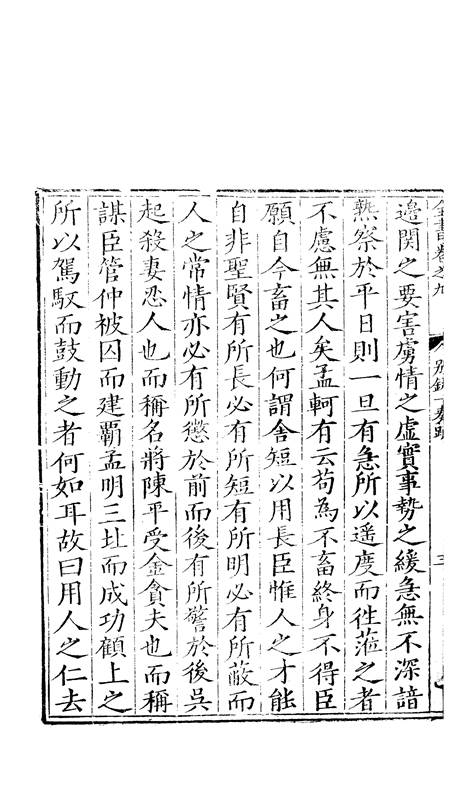 全書卷之九 別錄一奏疏 三
邊関之要害虜情之虛實事勢之緩急無不深諳
熟察於平日則一旦有急所以遥度而徃蒞之者
不慮無其人矣孟軻有云苟為不畜終身不得臣
願自今畜之也何謂舍短以用長臣惟人之才能
自非聖賢有所長必有所短有所明必有所蔽而
人之常情亦必有所懲於前而後有所警於後吳
起殺妻忍人也而稱名將陳平受金貪夫也而稱
謀臣管仲被囚而建霸孟明三北而成功顧上之
所以駕馭而鼓動之者何如耳故曰用人之仁去